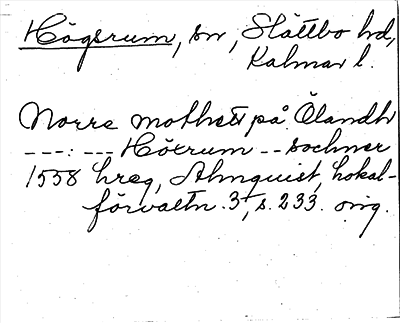 Högsrum, sn, Slättbo hd,
Kalmar l.
Norre mothett på Ölandh
---:--- Höxrum -- sochner
1558 hreg, Almquist, Lokal-
förvaltn. 3, s. 233. orig.